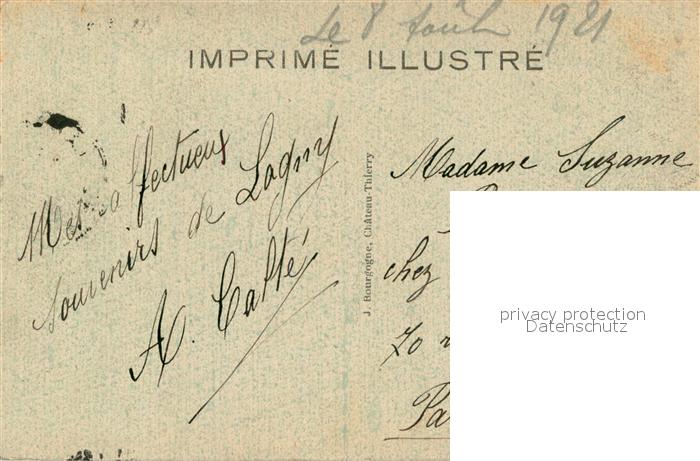 Le 8 Août 1921
IMPRIMÉ ILLUSTRÉ
Mes affectueux
souvenirs de Lagny
A. Calté
J. Bourgogne, Château-Thierry
Madame Suzanne
chez
Pa
privacy protection
Datenschutz